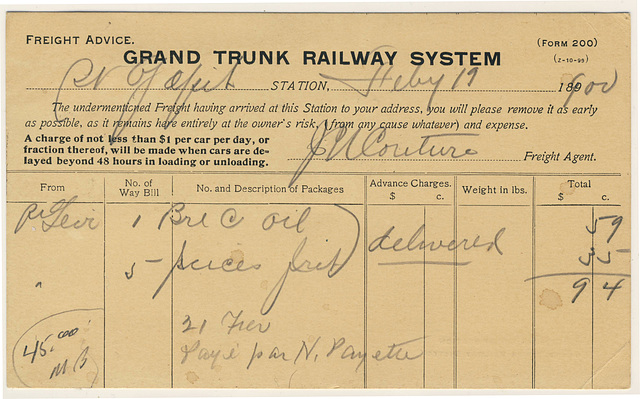 FREIGHT ADVICE. (FORM 200)
GRAND TRUNK RAILWAY SYSTEM (2-10-99)
STATION, Feby 19 189 900
The undermentioned Freight having arrived at this Station to your address, you will please remove it as early
as possible, as it remains here entirely at the owner's risk, (from any cause whatever) and expense.
A charge of not less than $1 per car per day, or
fraction thereof, will be made when cars are de-
layed beyond 48 hours in loading or unloading.
J N Couture Freight Agent.
From No. of Way Bill. No. and Description of Packages Advance Charges. $ c. Weight in lbs. Total $ c.
1 Brl C oil delivered 59
5 pieces 35
94
45.00 MB
21 Fev
Payé par N. Payette